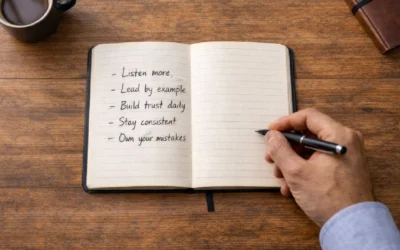 - Listen more,
- Lead by example
- Build trust daily
- Stay consistent
- Own your mistakes